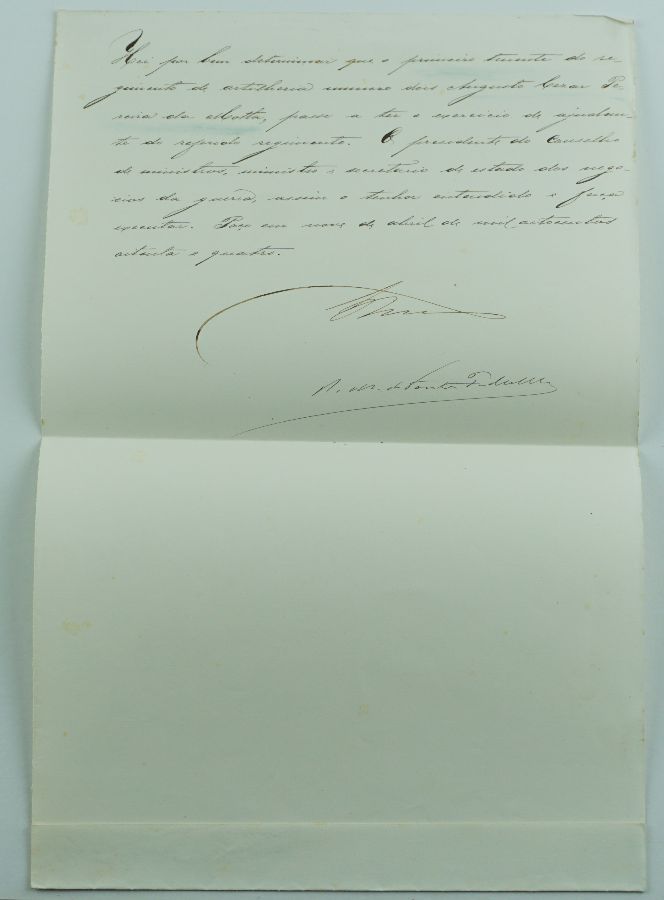 Hei por bem determinar que o primeiro tenente do re-
gimento de artilheria numero dois Augusto Cezar Pe-
reira da Motta, passe a ter o exercicio de ajudan-
te do referido regimento. O presidente do Conselho
de ministros, ministro e secretario de estado dos nego-
cios da guerra, assim o tenha entendido e faça
executar. Paço em nove de abril de mil oitocentos
oitenta e quatro.